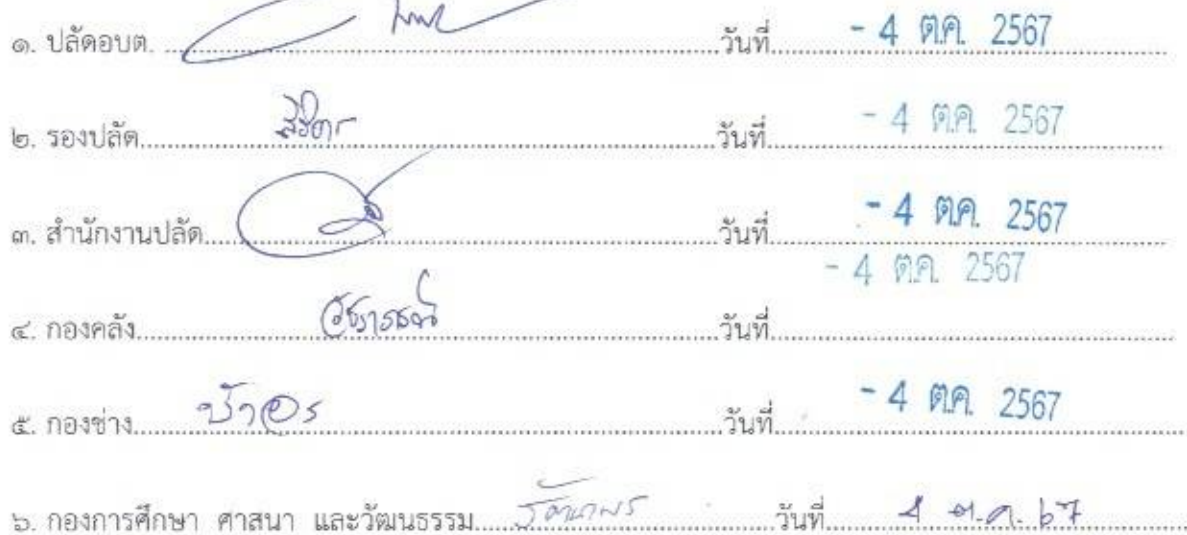 ๑. ปลัดอบต. วันที่ - 4 ต.ค. 2567
๒. รองปลัด วันที่ - 4 ต.ค. 2567
๓. สำนักงานปลัด วันที่ - 4 ต.ค. 2567
- 4 ต.ค. 2567
๔. กองคลัง วันที่
๕. กองช่าง วันที่ - 4 ต.ค. 2567
๖. กองการศึกษา ศาสนา และวัฒนธรรม วันที่ 4 ต.ค. 67